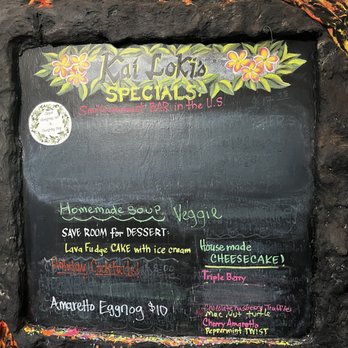 Kai Lokis
SPECIALS!
Southernmost BAR in the U.S
Homemade Soup Veggie
SAVE ROOM for DESSERT:
Lava Fudge CAKE with ice cream
House made
CHEESECAKE!
Triple Berry
Holiday Cocktails
Amaretto Eggnog $10
Mac Nut Turtle
Cherry Amaretto
Peppermint TWIST